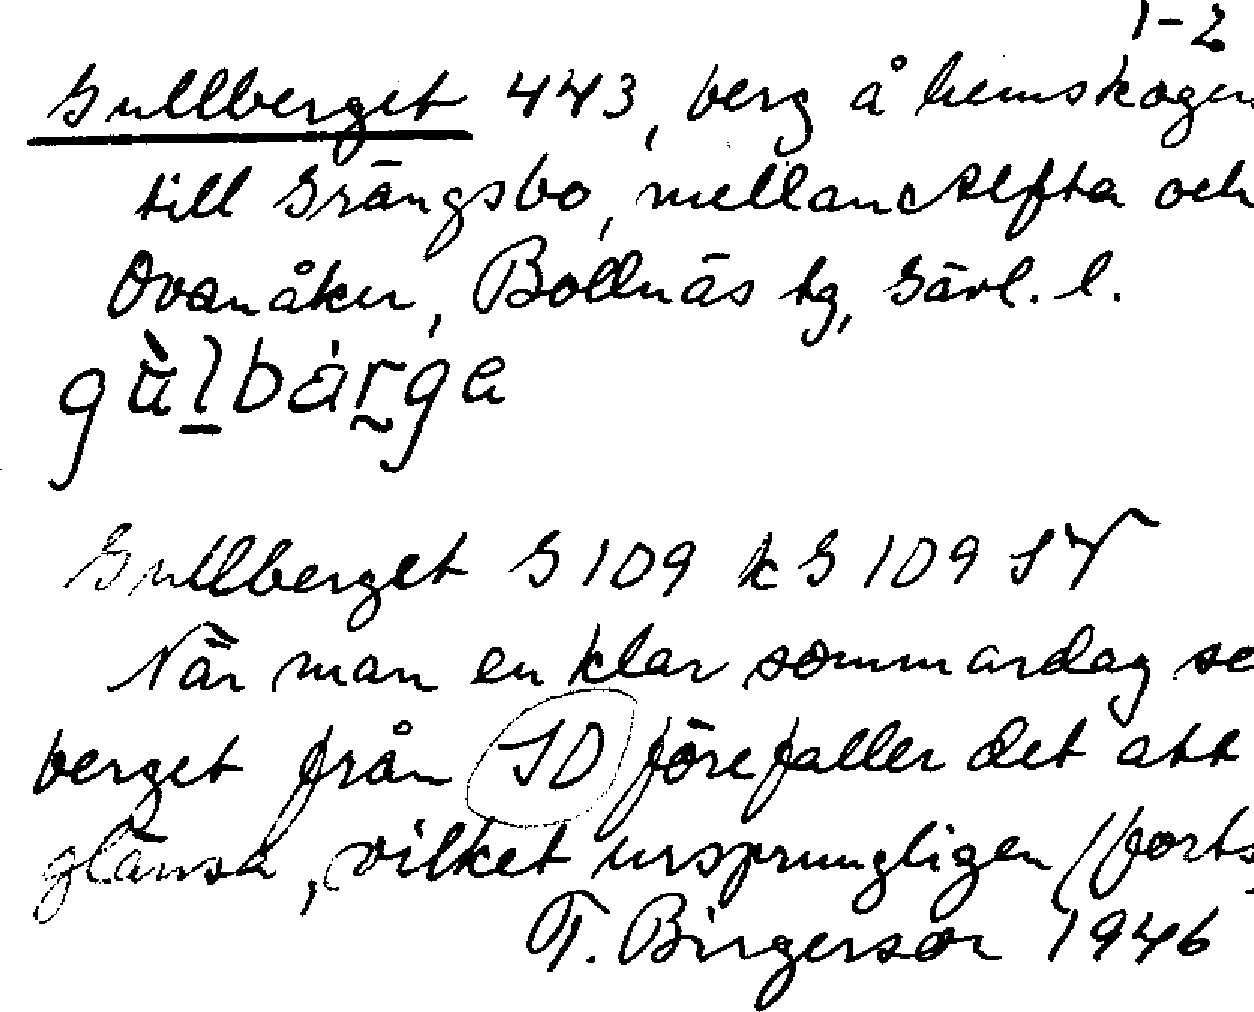 1-2
Gullberget 443, berg å hemskogen
till Grängsbo, mellan Alfta och
Ovanåker, Bollnäs tg, Gävl. l.
Gullberget G 109 k G 109 SV
När man en klar sommardag se
berget från SO förefaller det att
glänsa, vilket ursprungligen /forts.
T. Birgerson 1946